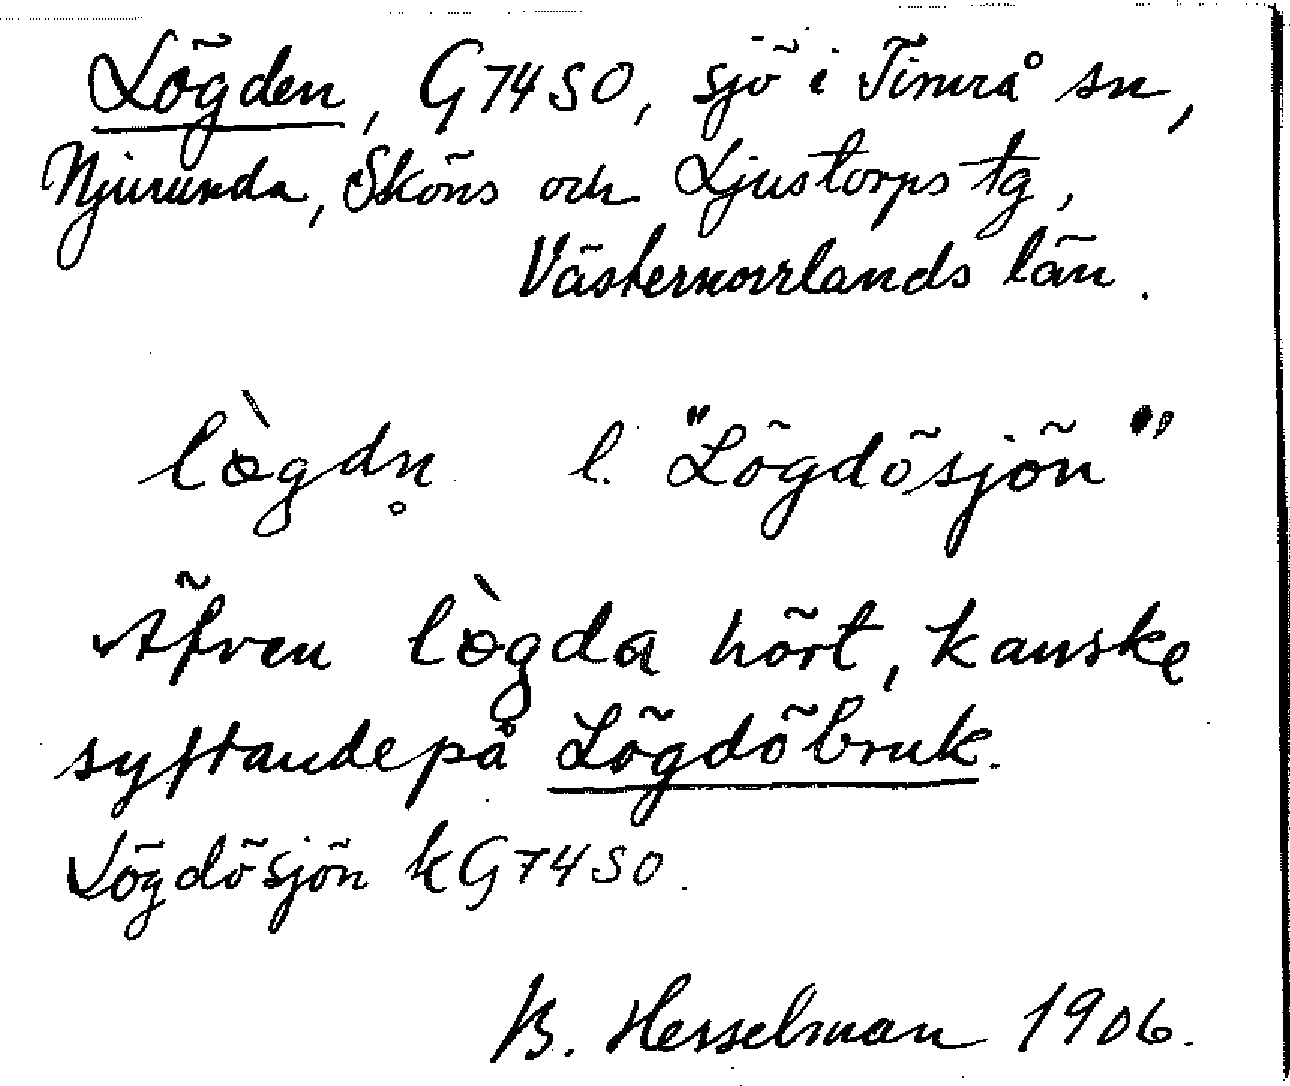 Lögden, G74SO, sjö i Timrå sn,
Njurunda, Sköns och Ljustorps tg,
Västernorrlands län.
lògdn̥ l. "Lögdösjön"
Äfven lògda hört, kanske
syftande på Lögdöbruk.
Lögdösjön kG74SO.
B. Hesselman 1906.